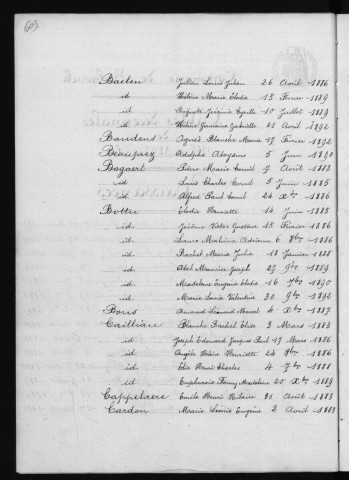 Baelen Julien Louis Julien 26 Août 1886
id Hélène Marie Elodie 15 Février 1889
id Auguste Jérémie Cyrille 10 Juillet 1889
id Hélène Germaine Gabrielle 21 Avril 1892
Baudens Agnès Blanche Maria 17 Février 1892
Beauprez Adolphe Aloysius 5 Juin 1890
Bogaert Pierre Marie Cornil 7 Août 1883
id Louis Charles Cornil 5 Juin 1885
id Alfred Paul Cornil 24 Xbre 1886
Botte Elodie Henriette 14 Juin 1885
id Jérôme Victor Gustave 15 Février 1886
id Laure Adrienne 6 8bre 1886
id Rachel Maria Julia 18 Janvier 1888
id Abel Maurice Joseph 27 9bre 1889
id Madeleine Eugénie Elodie 16 7bre 1890
id Marie Louise Valentine 30 9bre 1892
Bouis Arnaud Léonard Marcel 4 Xbre 1887
Cailliau Blanche Elise 3 Mars 1883
id Joseph Edouard Jacques Paul 17 Mars 1886
id Angèle Henriette 24 8bre 1886
id Elie Remi Charles 4 7bre 1888
id Euphrasie Fanny Madeleine 20 Xbre 1889
Cappelaere Emile Henri Hilaire 31 Août 1883
Cardon Marie Léonie Eugénie 2 Avril 1883